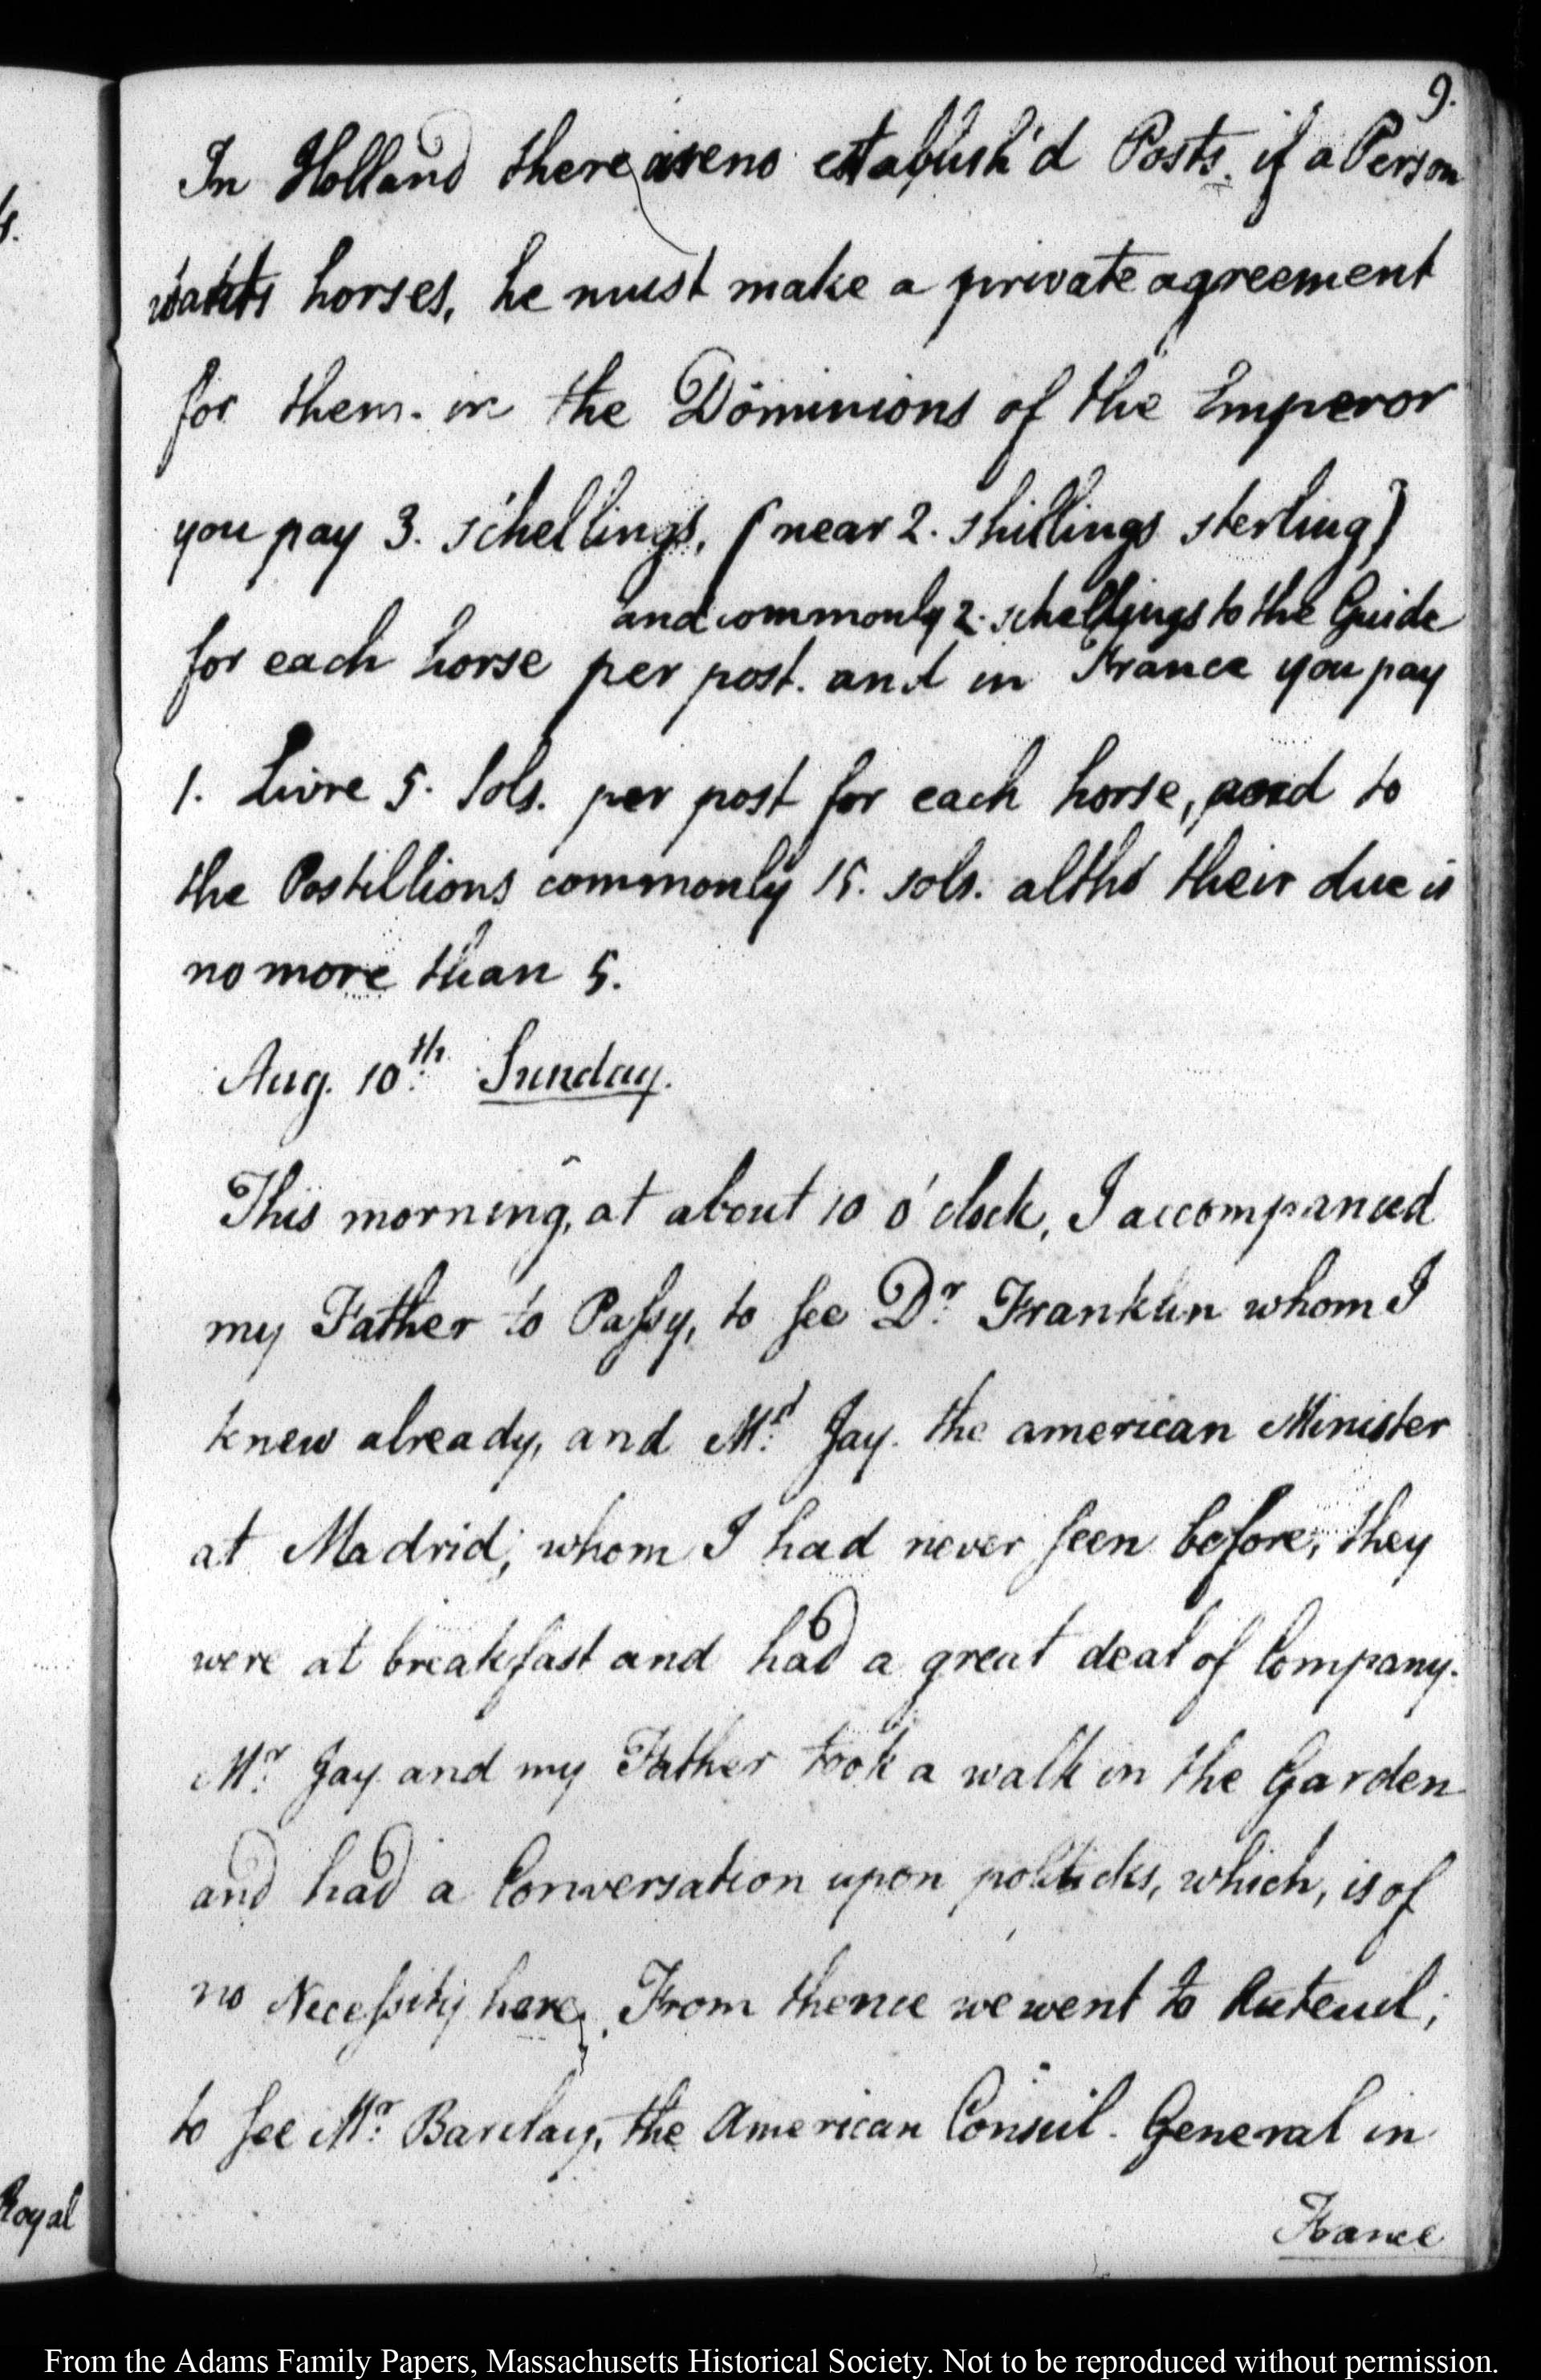 9.
In Holland there are no establish'd Posts. if a Person
wants horses, he must make a private agreement
for them. in the Dominions of the Emperor
you pay 3. schellings, (near 2. shillings sterling)
and commonly 2. schellings to the Guide
for each horse per post. and in France you pay
1. Livre 5. Sols. per post for each horse, and to
the Postillions commonly 15. sols. altho' their due is
no more than 5.
Aug. 10th. Sunday.
This morning, at about 10 o'clock, I accompanied
my Father to Passy, to see Dr. Franklin whom I
knew already, and Mr. Jay. the american Minister
at Madrid; whom I had never seen before; they
were at breakfast and had a great deal of Company.
Mr. Jay and my Father took a walk in the Garden
and had a Conversation upon politicks, which, is of
no Necessity here. From thence we went to Auteuil;
to see Mr. Barclay, the American Consul. General in
France
Royal
From the Adams Family Papers, Massachusetts Historical Society. Not to be reproduced without permission.